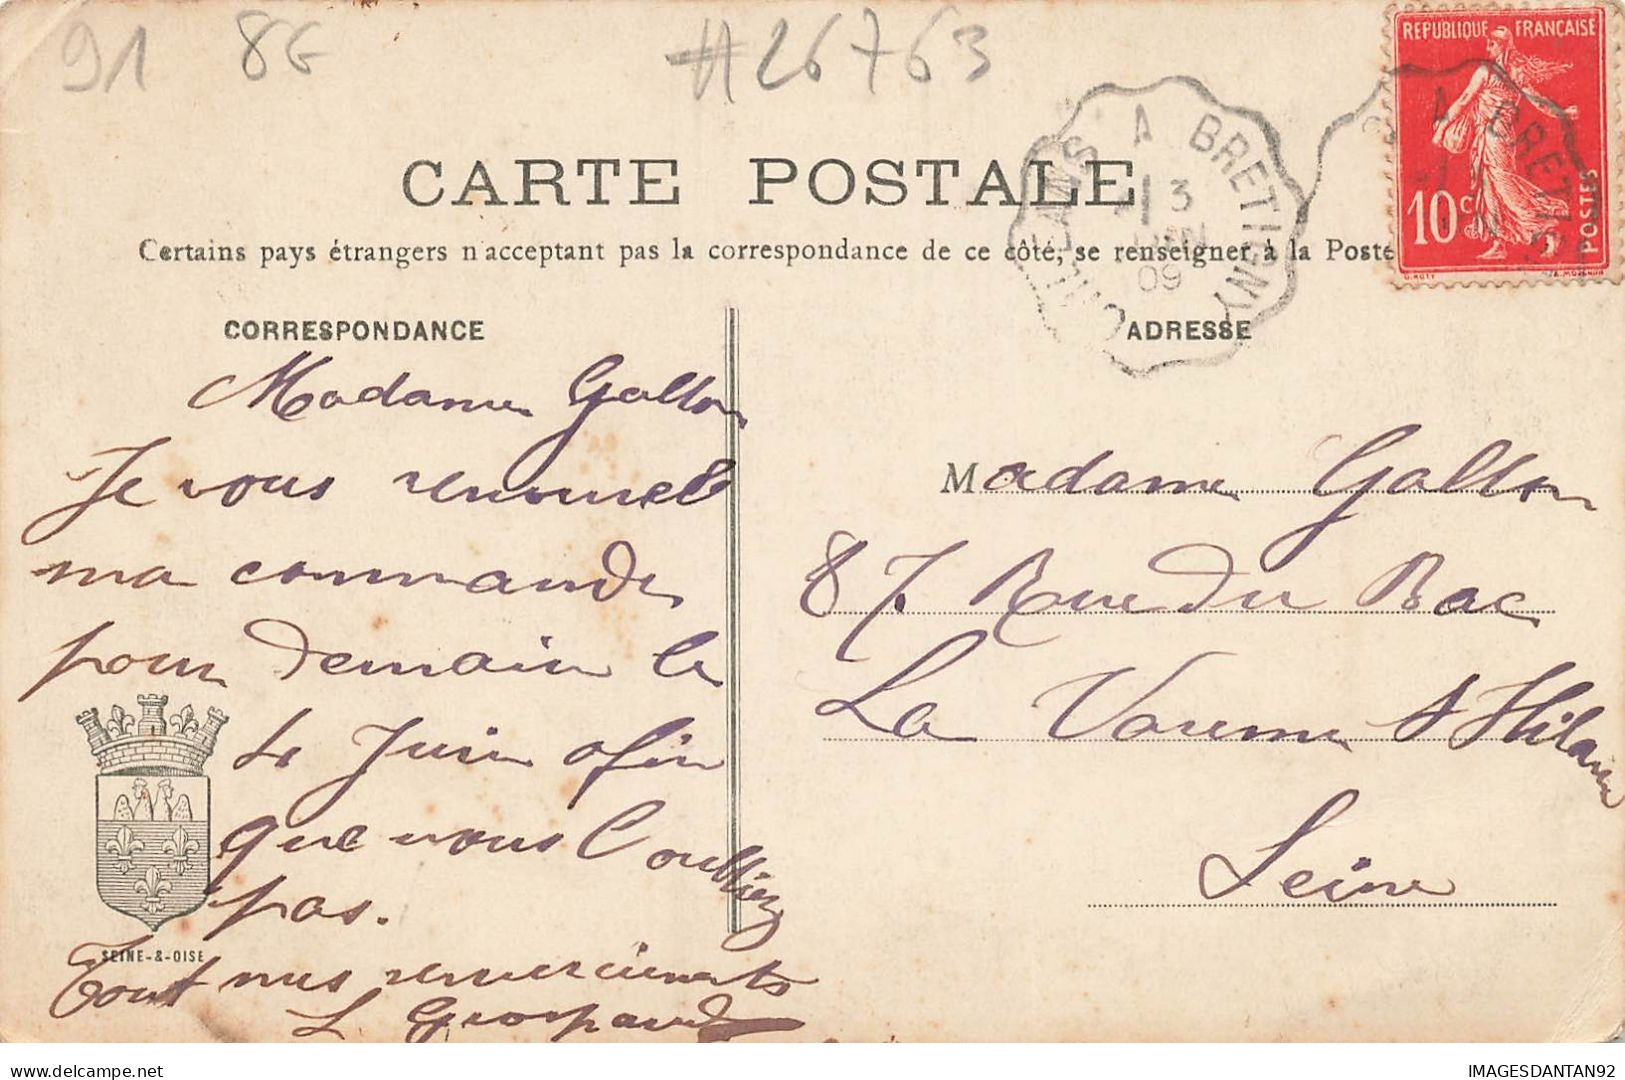 91 8G #26763
REPUBLIQUE FRANÇAISE
10c
POSTES
CARTE POSTALE
A BRETIGNY
3
JUIN
09
Certains pays étrangers n'acceptent pas la correspondance de ce côté, se renseigner à la Poste
CORRESPONDANCE
ADRESSE
Madame Gallon
Je vous renouvele
ma commande
pour demain le
4 Juin afin
que vous l'oubliez
pas.
Tout mes remerciements
L Grospaud
SEINE-&-OISE
Madame Gallon
87 Rue du Bac
La Varenne St Hilaire
Seine
IMAGESDANTAN92